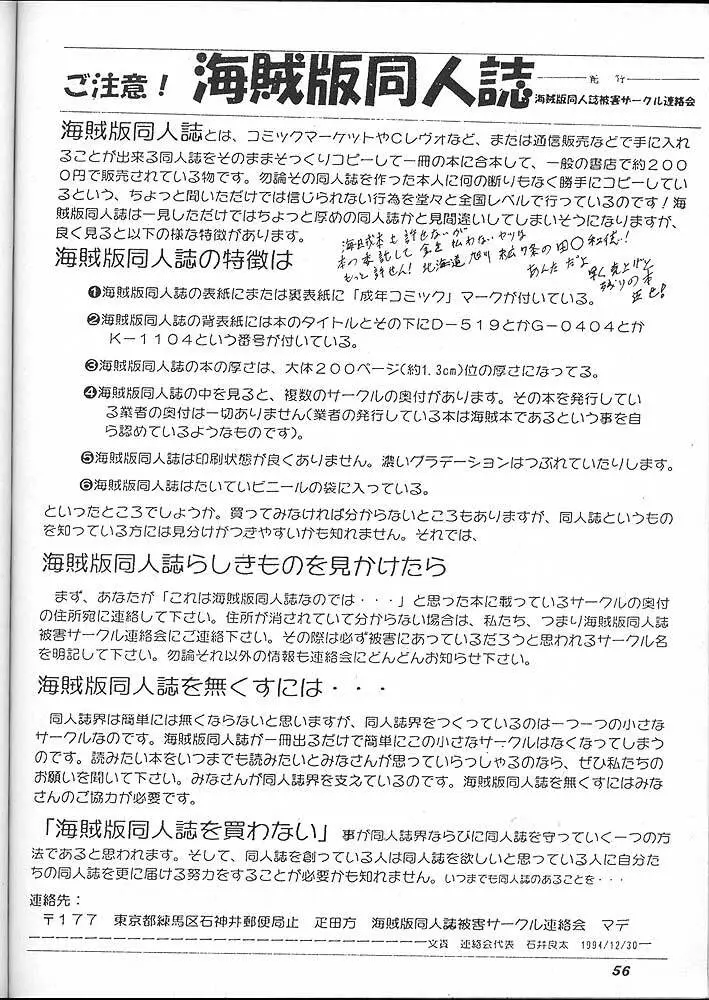 ご注意！ 海賊版同人誌
発行
海賊版同人誌被害サークル連絡会
海賊版同人誌とは、コミックマーケットやCレヴォなど、または通信販売などで手に入れ
ることが出来る同人誌をそのままそっくりコピーして一冊の本に合本して、一般の書店で約200
0円で販売されている物です。勿論その同人誌を作った本人に何の断りもなく勝手にコピーしてい
るという、ちょっと聞いただけでは信じられない行為を堂々と全国レベルで行っているのです！海
賊版同人誌は一見しただけではちょっと厚めの同人誌かと見間違いしてしまいそうになりますが、
良く見ると以下の様な特徴があります。
海賊本も許せないが
本の委託して金を払わないヤツは
もっと許せん！北海道旭川
あんただよ
売上げと
残りの本
海賊版同人誌の特徴は
❶海賊版同人誌の表紙にまたは裏表紙に「成年コミック」マークが付いている。
❷海賊版同人誌の背表紙には本のタイトルとその下にD－519とかG－0404とか
K－1104という番号が付いている。
❸海賊版同人誌の本の厚さは、大体200ページ(約1.3cm)位の厚さになってる。
❹海賊版同人誌の中を見ると、複数のサークルの奥付があります。その本を発行してい
る業者の奥付は一切ありません(業者の発行している本は海賊本であるという事を自
ら認めているようなものです)。
❺海賊版同人誌は印刷状態が良くありません。濃いグラデーションはつぶれていたりします。
❻海賊版同人誌はたいていビニールの袋に入っている。
といったところでしょうか。買ってみなければ分からないところもありますが、同人誌というもの
を知っている方には見分けがつきやすいかも知れません。それでは、
海賊版同人誌らしきものを見かけたら
まず、あなたが「これは海賊版同人誌なのでは・・・」と思った本に載っているサークルの奥付
の住所宛に連絡して下さい。住所が消されていて分からない場合は、私たち、つまり海賊版同人誌
被害サークル連絡会にご連絡下さい。その際は必ず被害にあっているだろうと思われるサークル名
を明記して下さい。勿論それ以外の情報も連絡会にどんどんお知らせ下さい。
海賊版同人誌を無くすには・・・
同人誌界は簡単には無くならないと思いますが、同人誌界をつくっているのは一つ一つの小さな
サークルなのです。海賊版同人誌が一冊出るだけで簡単にこの小さなサークルはなくなってしまう
のです。読みたい本をいつまでも読みたいとみなさんが思っていらっしゃるのなら、ぜひ私たちの
お願いを聞いて下さい。みなさんが同人誌界を支えているのです。海賊版同人誌を無くすにはみな
さんのご協力が必要です。
「海賊版同人誌を買わない」事が同人誌界ならびに同人誌を守っていく一つの方
法であると思われます。そして、同人誌を創っている人は同人誌を欲しいと思っている人に自分た
ちの同人誌を更に届ける努力をすることが必要かも知れません。いつまでも同人誌のあることを・・・
連絡先：
〒177 東京都練馬区石神井郵便局止 疋田方 海賊版同人誌被害サークル連絡会 マデ
文責 連絡会代表 石井良太 1994/12/30
56